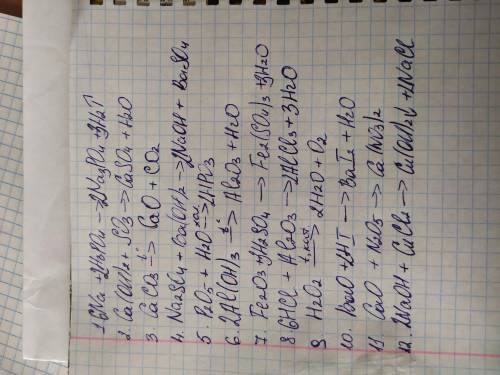 1. 6Na + 2H3PO4 → 2Na3PO4 + 3H2↑
2. Ca(OH)2 + SO3 → CaSO4 + H2O
3. CaCO3 t° → CaO + CO2
4. Na2SO4 + Ba(OH)2 → 2NaOH + BaSO4
5. P2O5 + H2O → 2HPO3
6. 2Al(OH)3 t° → Al2O3 + H2O
7. Fe2O3 + 3H2SO4 → Fe2(SO4)3 + 3H2O
8. 6HCl + Al2O3 → 2AlCl3 + 3H2O
9. H2O2 → 2H2O + O2
10. BaO + 2HI → BaI2 + H2O
11. CaO + N2O5 → Ca(NO3)2
12. 2NaOH + CuCl2 → Cu(OH)2↓ + 2NaCl